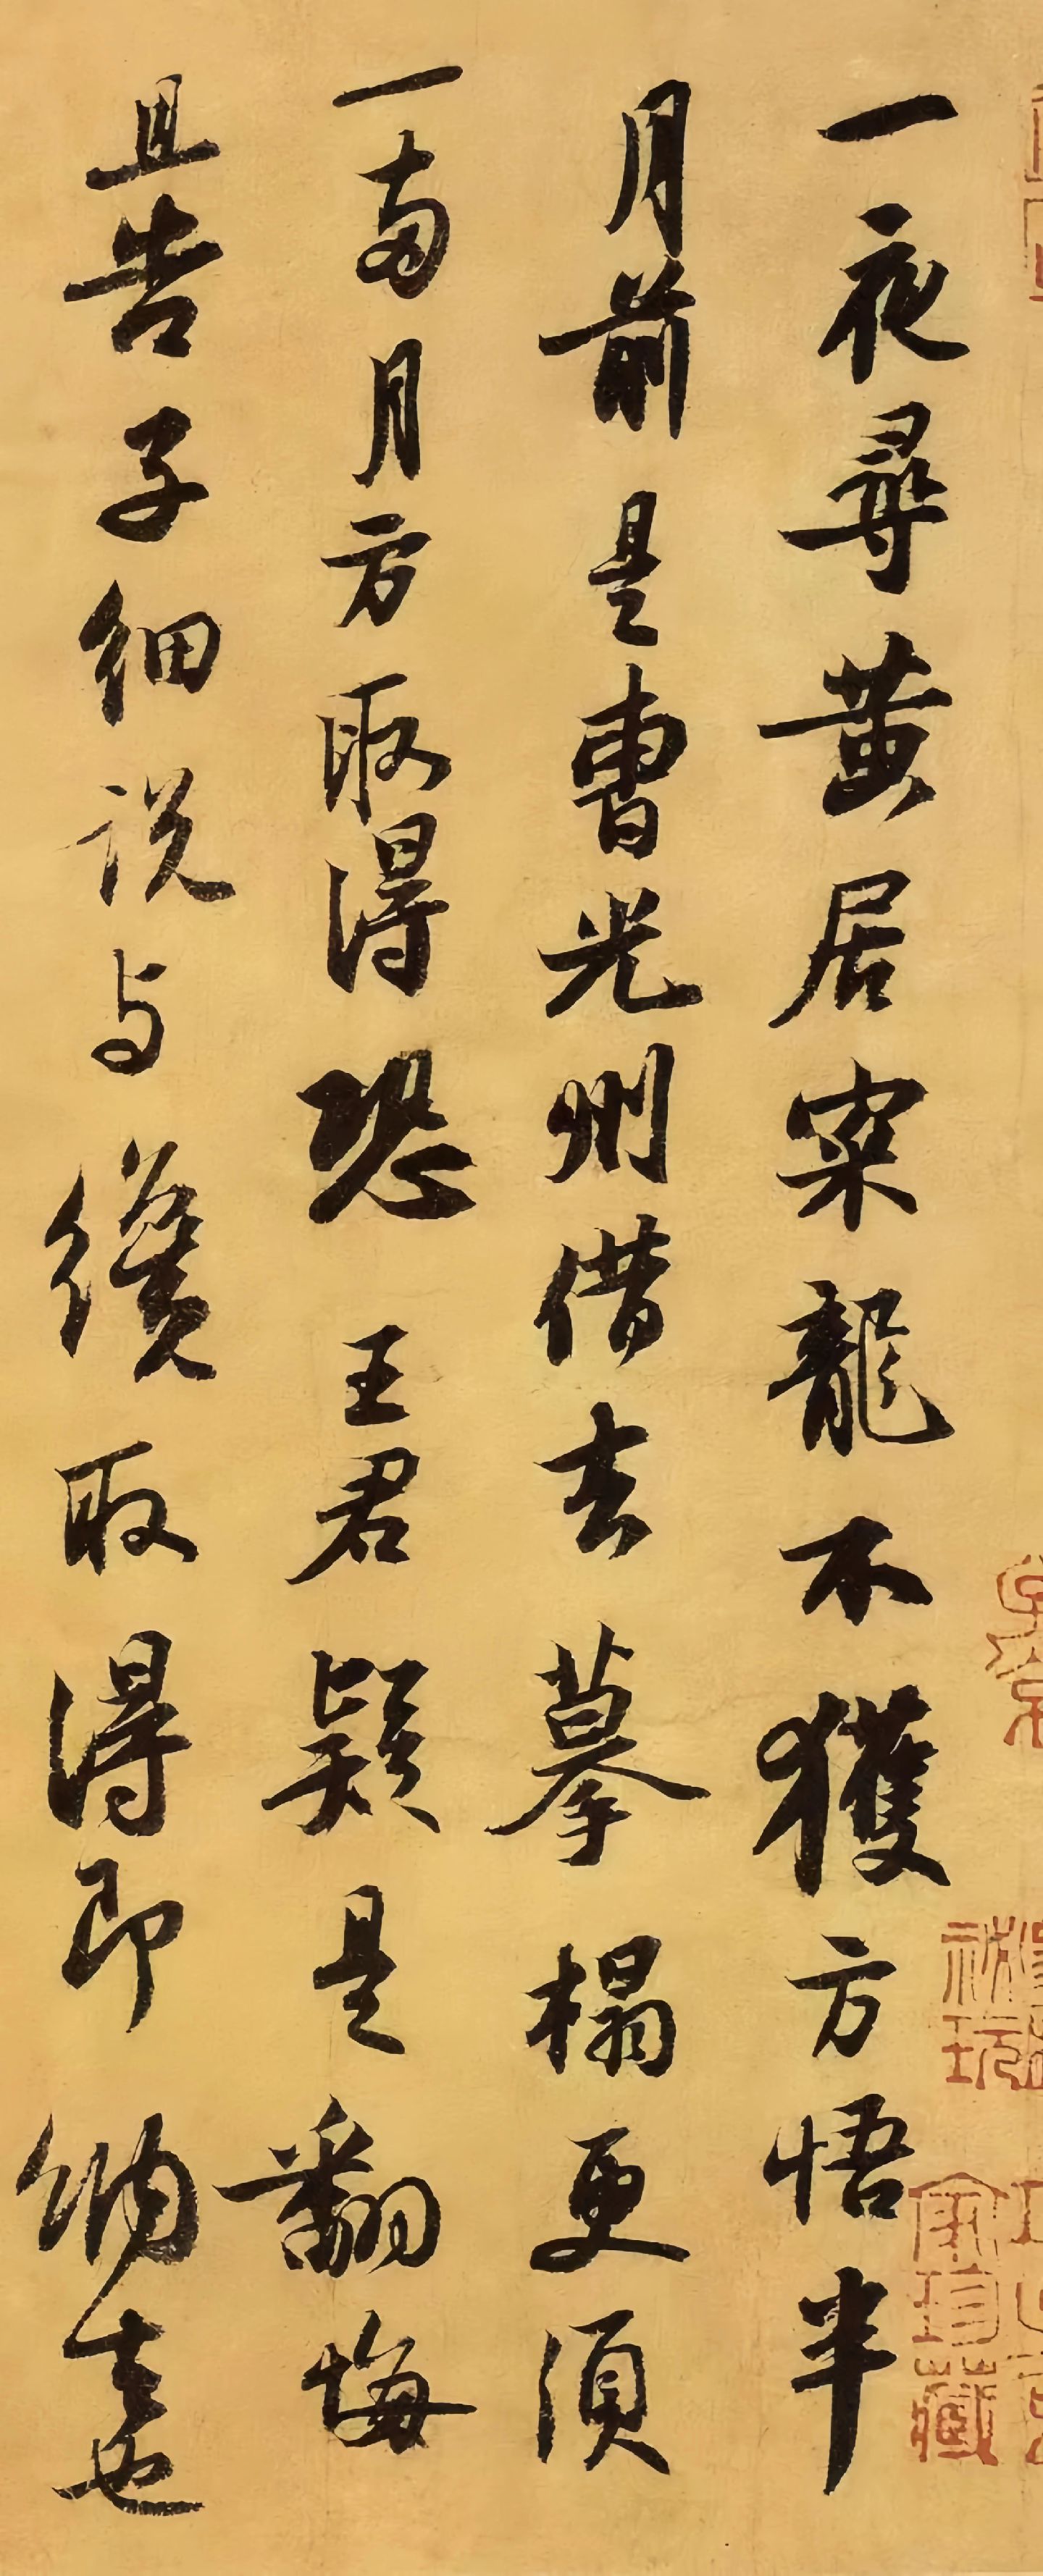 一夜尋黄居寀龍不獲方悟半
月前是曹光州借去摹榻更須
一兩月方取得恐王君疑是翻悔
且告子細說与纔取得即納去也